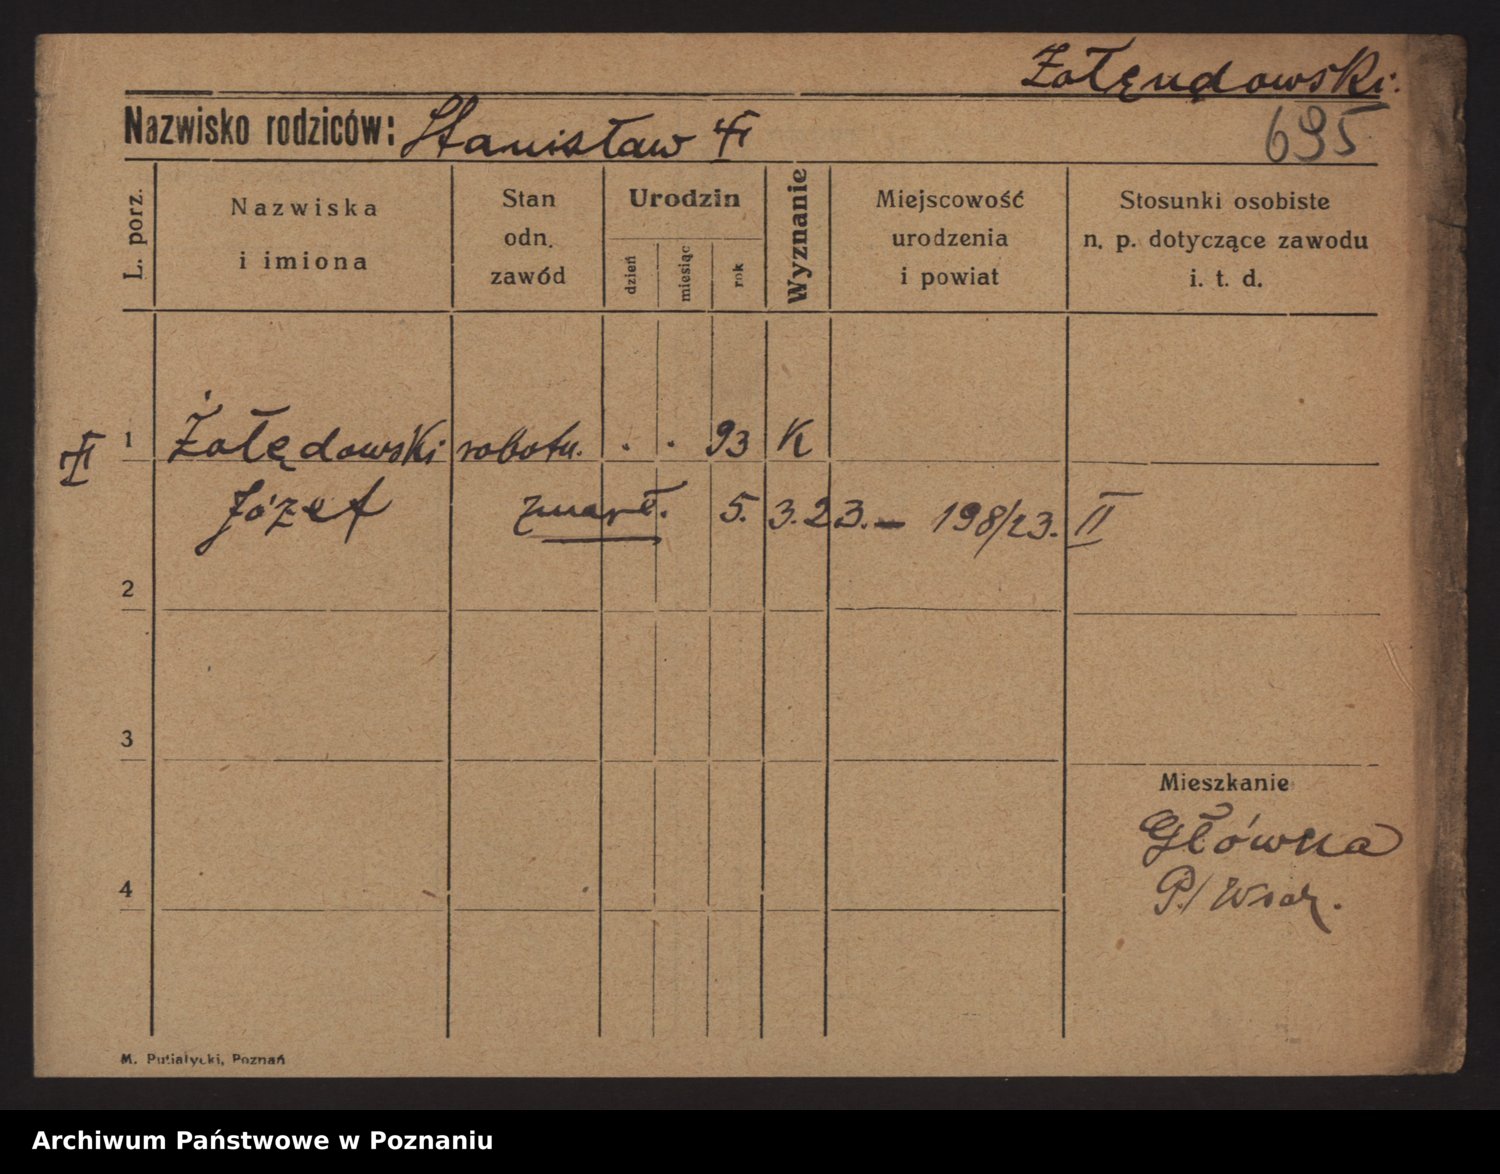 Żołędowski.
Nazwisko rodziców: Stanisław
695
L. porz.
Nazwiska
i imiona
Stan
odn.
zawód
Urodzin
dzień
miesiąc
rok
Wyznanie
Miejscowość
urodzenia
i powiat
Stosunki osobiste
n. p. dotyczące zawodu
i. t. d.
1 Żołędowski robotn. . . 93 K
Józef zmarł. 5. 3. 23. – 198/23. II
2
3
Mieszkanie
Główna
4
M. Putiatycki, Poznań
Archiwum Państwowe w Poznaniu